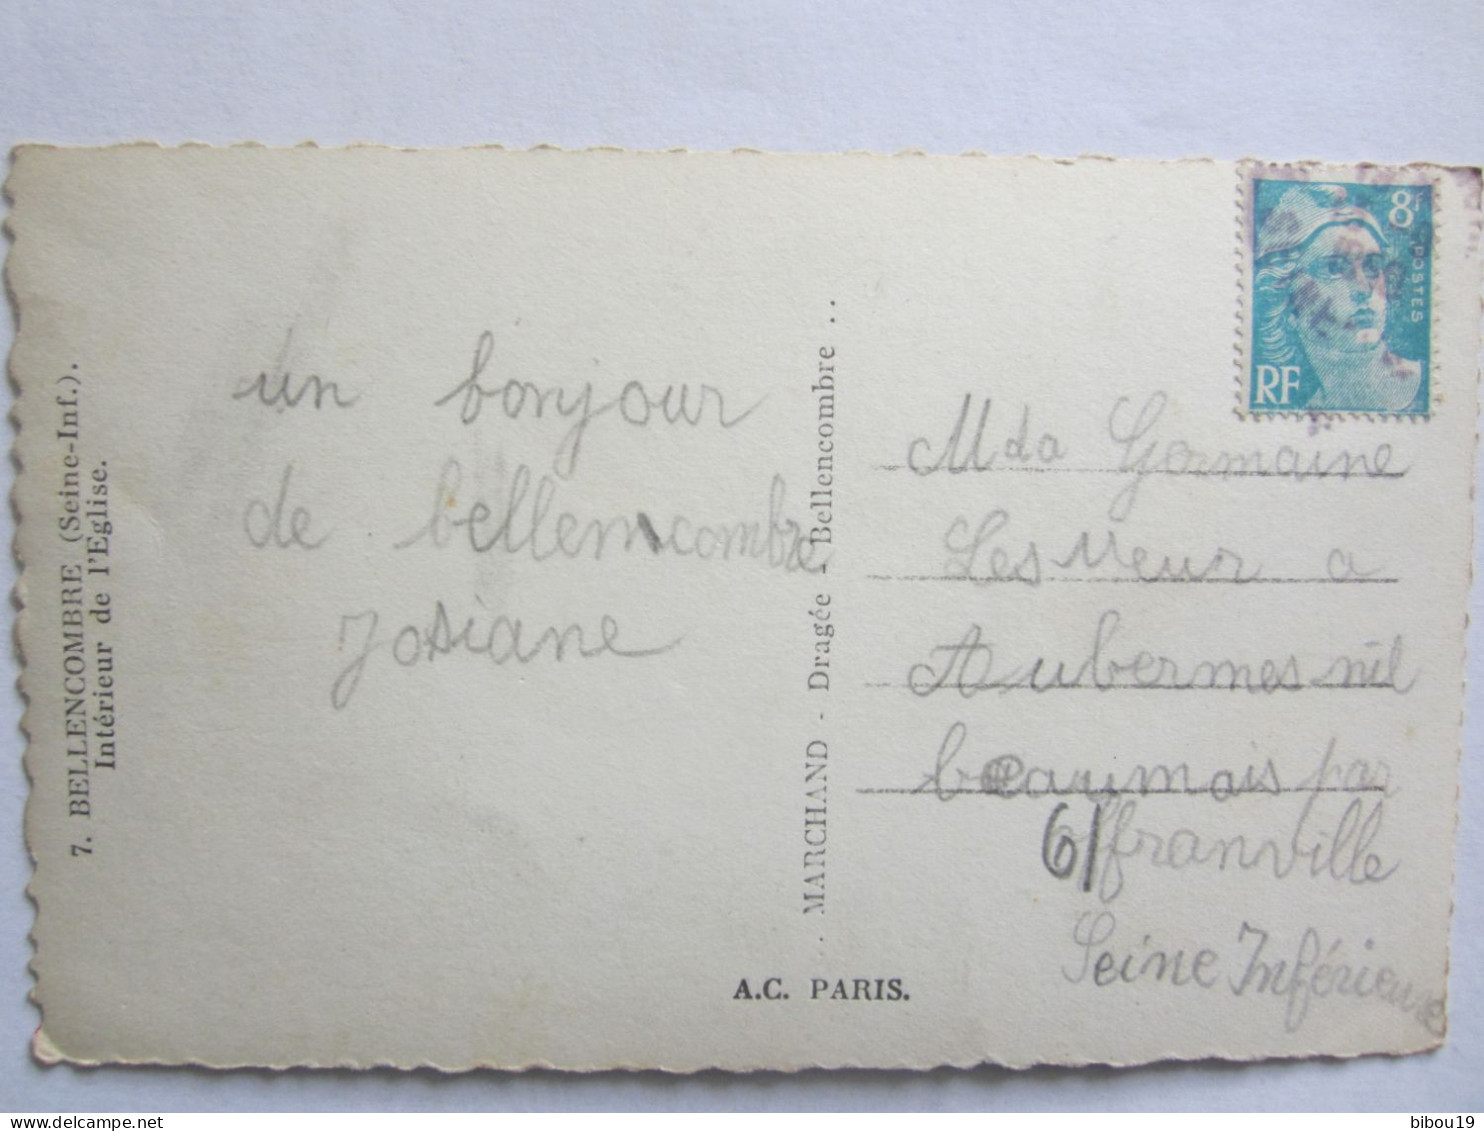 7. BELLENCOMBRE (Seine-Inf.).
Intérieur de l'Eglise.
un bonjour
de bellemcombre
Josiane
MARCHAND - Dragée - Bellencombre ..
A.C. PARIS.
8F
POSTES
RF
Germaine
a
Aubermesnil
beaumais par
61
offranville
Seine Inférieure
bibou19